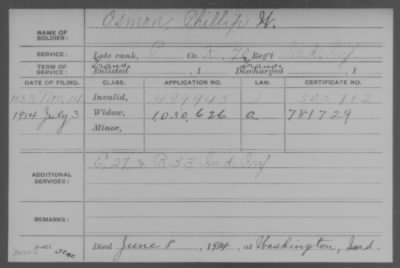 NAME OF SOLDIER: Osmon, Phillip W.
SERVICE: Late rank, P Co. K, 76 Reg't Ind. Inf
TERM OF SERVICE: Enlisted , 1 Discharged , 1
DATE OF FILING. CLASS. APPLICATION NO. LAW. CERTIFICATE NO.
Invalid,
1914 July 3 Widow, 1,030,626 a 781729
Minor,
ADDITIONAL SERVICES: E, 27 & B 33 Ind Inf
REMARKS:
Died June 8, 1914, at Washington, Ind.